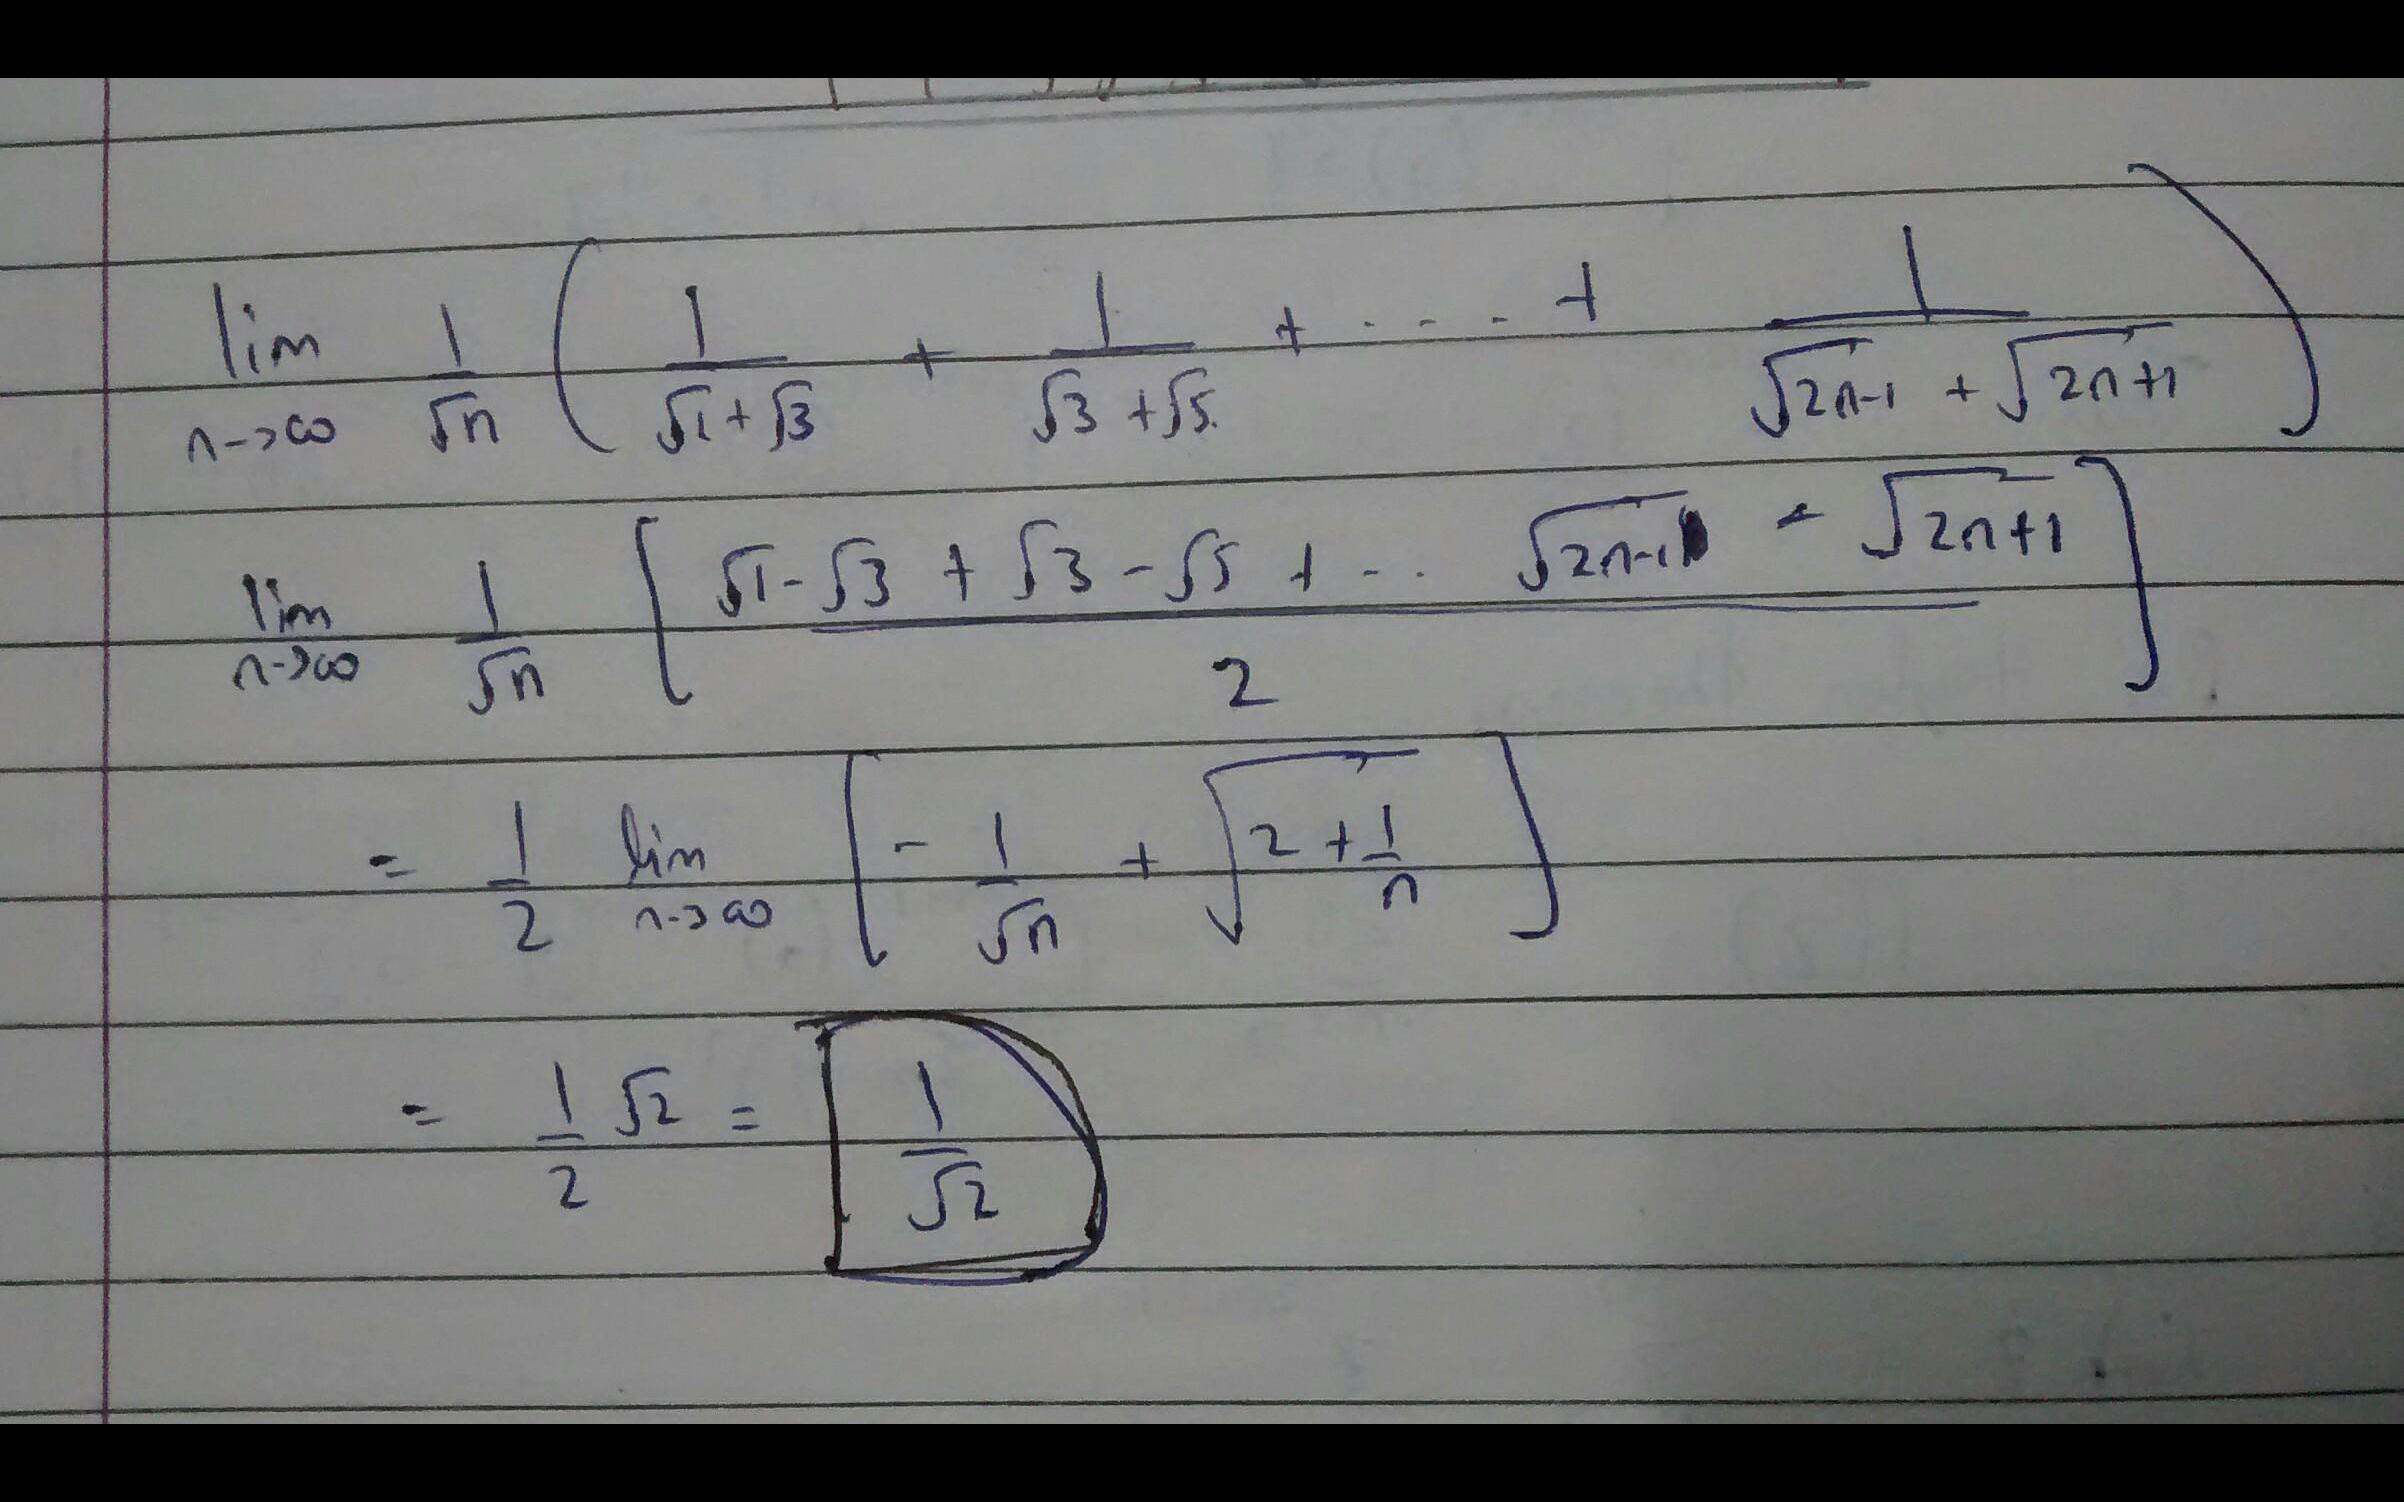 lim n→∞ 1/√n ( 1/(√1+√3) + 1/(√3+√5) + .... + 1/(√(2n-1) + √(2n+1)) )
lim n→∞ 1/√n [ (√1-√3 + √3-√5 + ... √(2n-1) - √(2n+1))/2 ]
= 1/2 lim n→∞ [ - 1/√n + √(2+1/n) ]
= 1/2 √2 = 1/√2